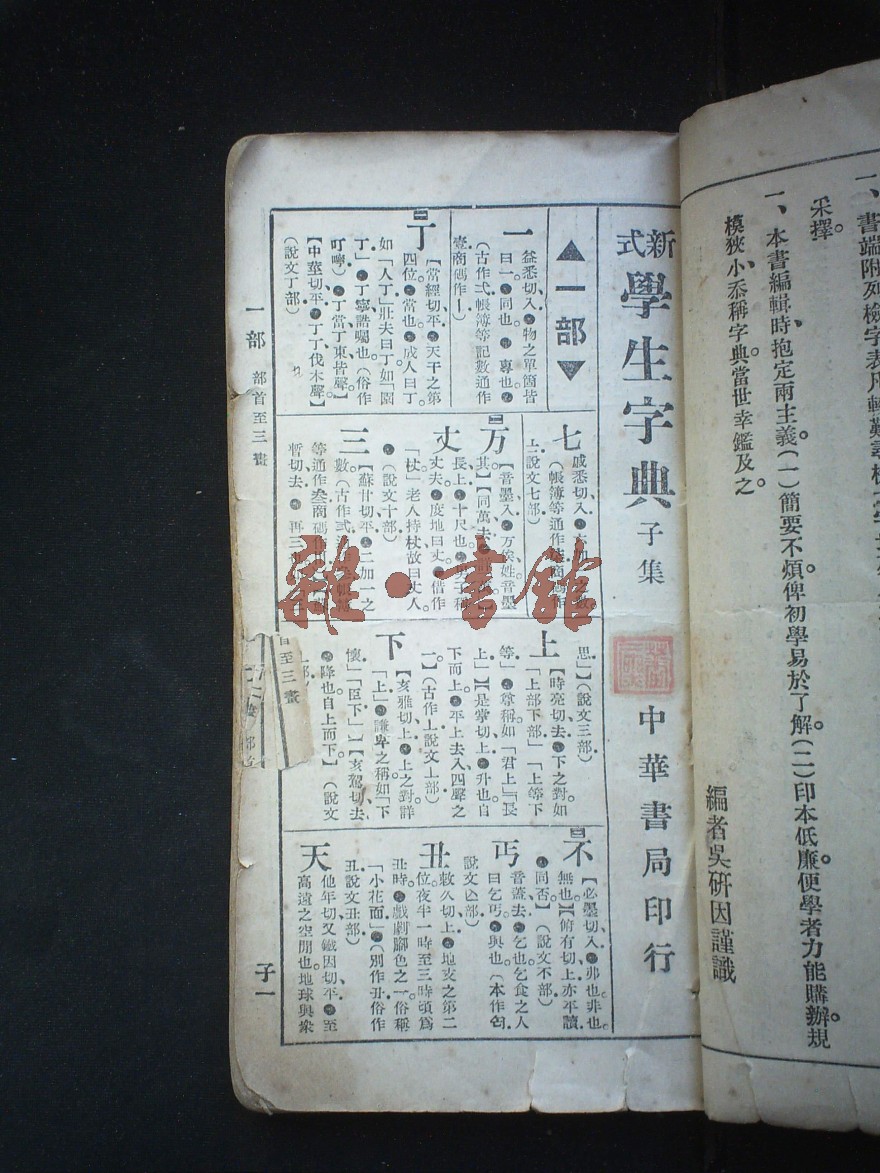 一、書端附列檢字表凡
采擇。
一、本書編輯時抱定兩主義(一)簡要不煩俾初學易於了解。(二)印本低廉便學者力能購辦規
模狹小忝稱字典當世幸鑑及之。
編者吳研因謹識
新式學生字典 子集 中華書局印行
▲一部▼
一
益悉切入。●物之單箇皆
曰一。●同也。●專也。●
(古作弌帳簿等記數通作
壹商碼作〡)
二
丁
【當經切平。●天干之第
四位。●當也。●成人曰丁
如「人丁」壯夫曰丁如「園
丁」●丁寧誥囑也(俗作
叮嚀)●丁當丁東皆聲】
【中莖切平。●丁丁、伐木聲】
(說文丁部)
七
戚悉切入。
(帳簿等通作
〦說文七部)
万
【音墨入。●万俟姓音墨
其】【同萬去。
丈
長上。●十尺也。●男子稱
丈夫。●度地曰丈。●借作
「杖」老人持杖故曰丈人
●(說文十部)
三
【蘇甘切平。●二加一之
數(古作弎
等通作叁商碼作
暫切去。●再三
思」】(說文三部)
上
【時亮切去。●下之對如
「上部下部」「上等下
等」●尊稱如「君上」「長
上」】【是掌切上。●升也。自
下而上。●平上去入四聲之
一。】(古作丄說文上部)
下
【亥雅切上。●上之對詳
「上」●謙卑之稱如「下
懷」「臣下」】【亥駕切去、
●降也自上而下】(說文
三
不
【必墨切入。●弗也非也。
無也】【俯有切上亦平讀
●同否】(說文不部)
丐
音蓋去。●乞也。乞食之人
曰乞丐。●與也。(本作匄
說文亾部)
丑
敕久切上。●地支之第二
位。夜半一時至三時頃爲
丑時。●戲劇腳色之一俗稱
「小花面」●(別作丒俗作
丑說文丑部)
天
他年切又鐵因切平。●至
高遠之空閒也地球與衆
一部 部首至三畫
子一
首至三畫
雜·書館